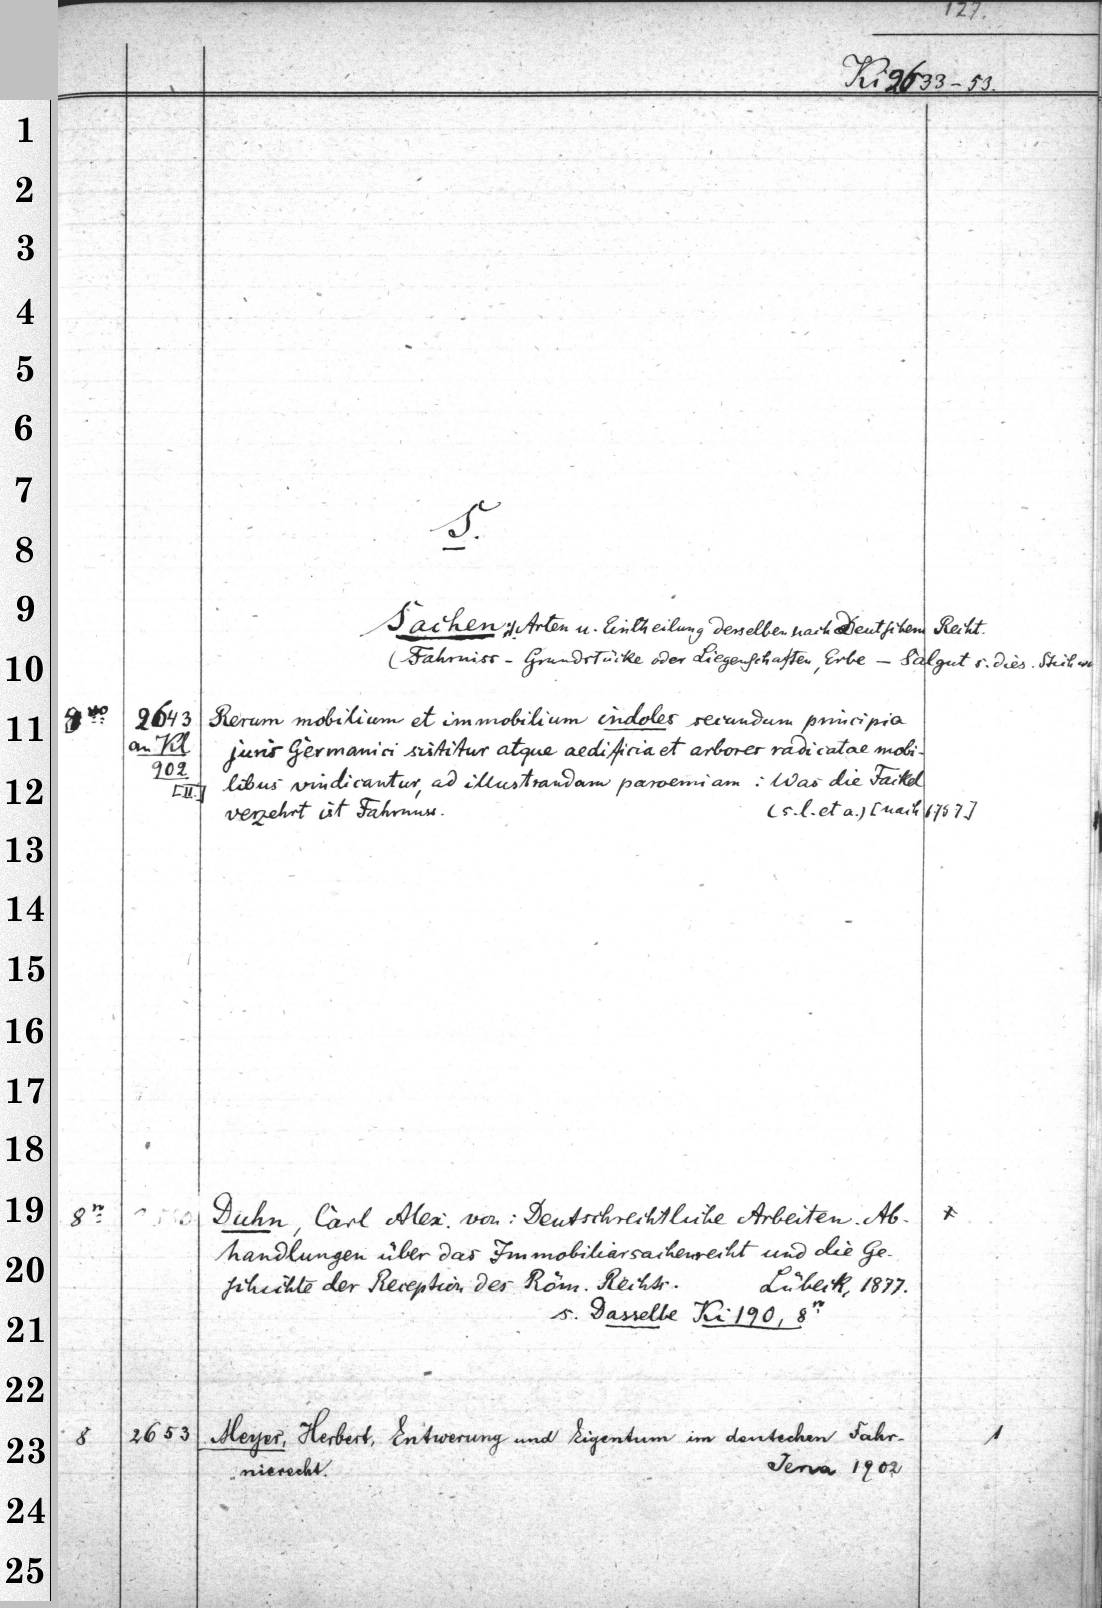 127.
Ki 2633-53.
1
2
3
4
5
6
7
S.
8
9
Sachen: Arten u. Eintheilung derselben nach Deutschem Recht.
10
(Fahrniss - Grundstücke oder Liegenschaften, Erbe - Salgut s. dies.
11
8vo 2643 Rerum mobilium et immobilium indoles secundum principia
an Kl juris Germanici sistitur atque aedificia et arbores radicatae mobi-
902
12
[II.] libus vindicantur, ad illustrandam paroemiam: Was die Fackel
verzehrt ist Fahrnuss. (s. l. et a.) [nach 1757]
13
14
15
16
17
18
19
8° Duhn, Carl Alex. von: Deutschrechtliche Arbeiten. Ab- x
20
handlungen über das Immobiliarsachenrecht und die Ge-
schichte der Reception des Röm. Rechts. Lübeck, 1877.
21
s. Dasselbe Ki 190, 8°
22
23
8 2653 Meyer, Herbert, Entwerung und Eigentum im deutschen Fahr- 1
nisrecht. Jena 1902
24
25